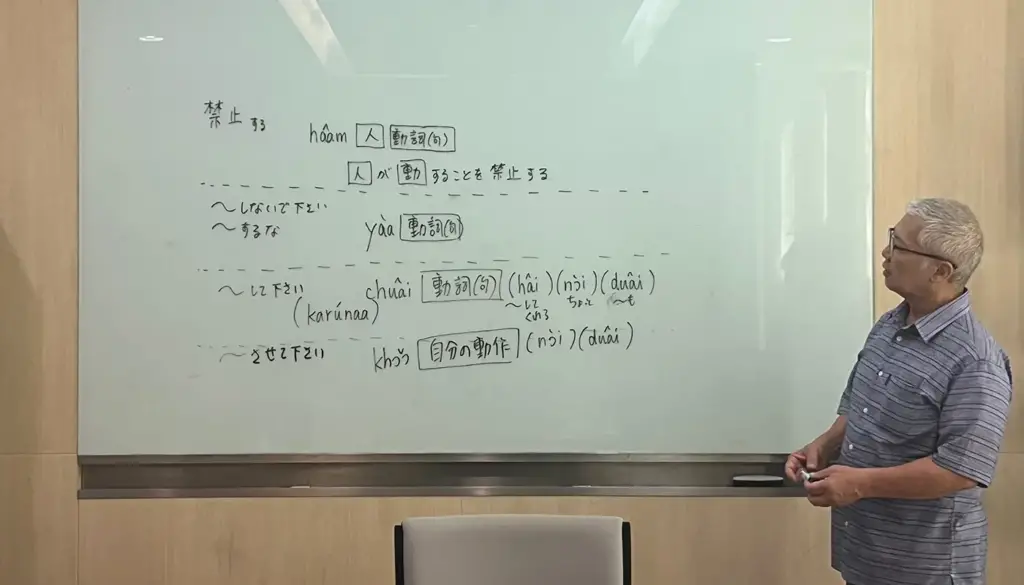 禁止する
hâam 人 動詞(句)
人 が 動 することを 禁止する
〜しないで下さい
〜するな
yàa 動詞(句)
〜して下さい
(karúnaa) chuâi 動詞(句) (hâi) (nɔ̀i) (duâi)
〜してくれる ちょっと 〜も
〜させて下さい
khɔ̌ɔ 自分の動作 (nɔ̀i) (duâi)